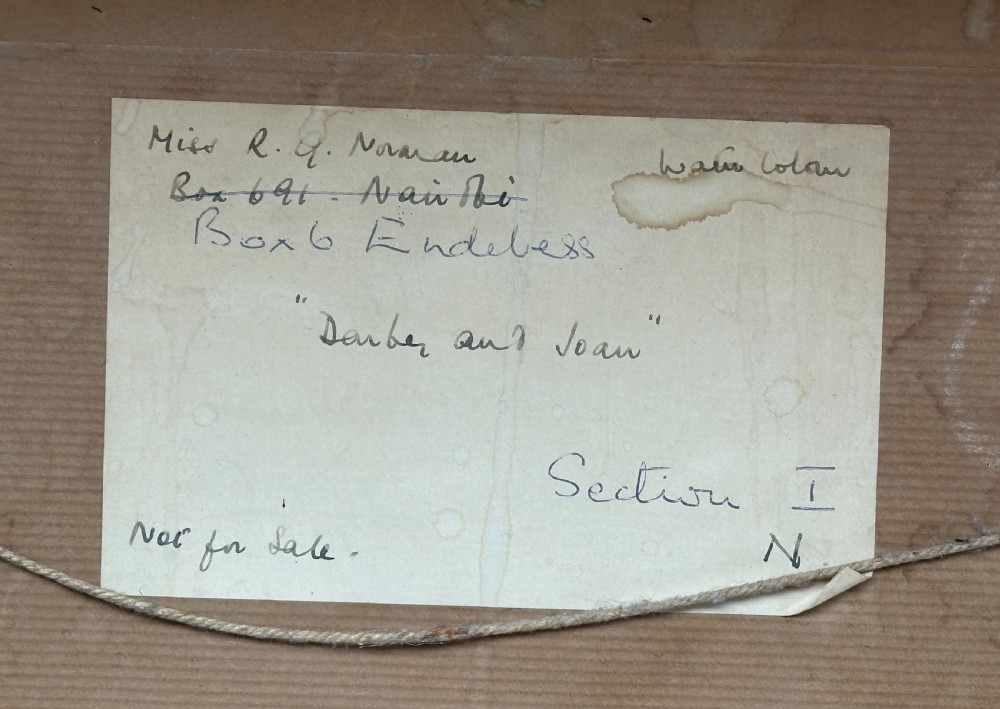 Miss R. G. Norman
Water Colour
Box 691. Nairobi
Box 6 Endebess
"Darby and Joan"
Section I
Not for Sale.
N